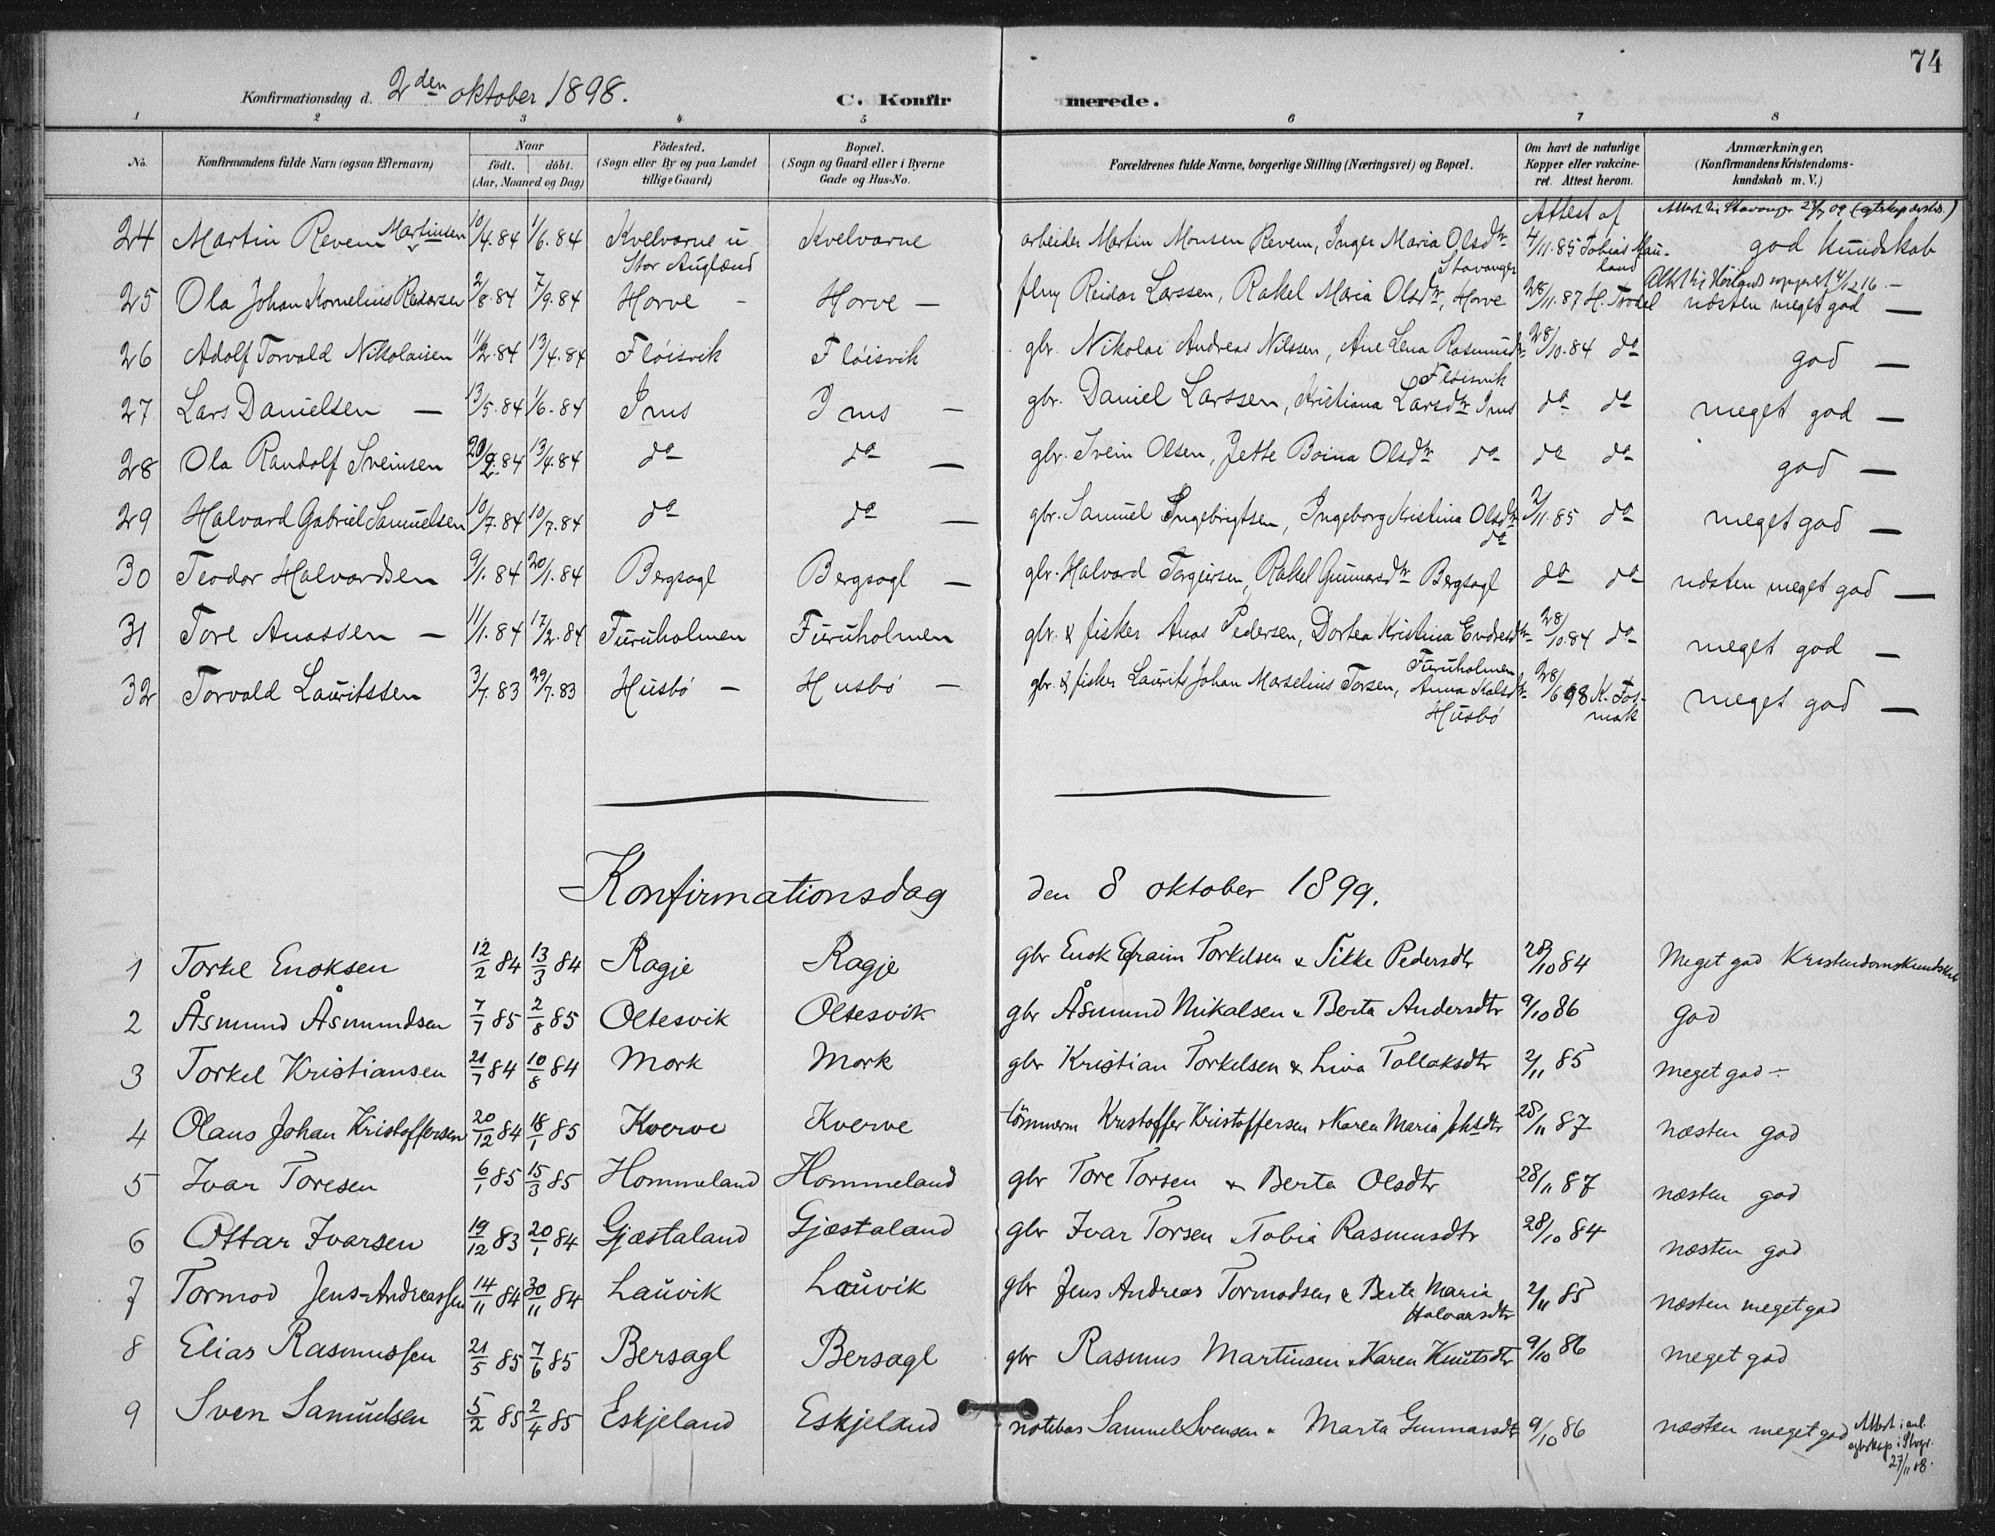 74
Konfirmationsdag d. 2den oktober 1898. C. Konfirmerede.
1 2 3 4 5 6 7 8
No. Konfirmandens fulde Navn (ogsaa Efternavn) Naar født. døbt. (Aar, Maaned og Dag) Födested. (Sogn eller By og paa Landet tillige Gaard) Bopæl. (Sogn og Gaard eller i Byerne Gade og Hus-No. Forældrenes fulde Navne, borgerlige Stilling (Næringsvei) og Bopæl. Om havt de naturlige Kopper eller vakcineret. Attest herom. Anmærkninger. (Konfirmandens Kristendomskundskab m. V.)
24 Martin Revem Martinsen 10/4.84 1/6.84 Kvelvarne u Stor Auglænd Kvelvarne arbeider Martin Monsen Revem, Inger Maria Olsdtr Stavanger Attest af 4/11.85 Tobias Mauland Attest til Stavanger god kundskab
25 Ola Johan Kornelius Reidarsen 2/8.84 7/9.84 Horve - Horve - Reidar Larssen, Rakel Maria Olsdtr, Horve 28/11.87 næsten meget god —
26 Adolf Torvald Nikolaisen 11/2.84 13/4.84 Fløisvik Fløisvik gbr. Nikolai Andreas Nilssen, Ane Lena Rasmusdtr Fløisvik 28/10.84 do god —
27 Lars Danielsen — 13/5.84 1/6.84 Ims Ims — gbr. Daniel Larssen, Kristiana Larsdtr Ims do do meget god —
28 Ola Randolf Sveinsen 20/2.84 13/4.84 do do — gbr. Svein Olsen, Jette Boina Olsdtr do do do god —
29 Halvard Gabriel Samuelsen 10/7.84 10/7.84 do do — gbr. Samuel Ingebrigtsen, Ingeborg Kristina Olsdtr do 2/11.85 do meget god —
30 Teodor Halvardsen 9/1.84 20/1.84 Bergsagl Bergsagl — gbr. Halvard Torgersen, Rakel Gunnarsdtr Bergsagl do do næsten meget god —
31 Tore Anassen — 11/1.84 17/2.84 Furuholmen Furuholmen gbr. & fisker Anas Pedersen, Dortea Kristina Endresdtr Furuholmen 28/10.84 do meget god —
32 Torvald Lauritssen 3/7.83 29/7.83 Husbø — Husbø — gbr. & fisker Laurits Johan Marselius Torsen, Anna Kalsdtr Husbø 28/6 98 K. Fosmark meget god —
Konfirmationsdag den 8 oktober 1899.
1 Torkel Enoksen 12/2 84 13/3 84 Ragje Ragje gbr Enok Efraim Torkelsen & Sikke Pedersdtr 28/10 84 Meget god Kristendomskundskab
2 Åsmund Åsmundsen 7/7 85 2/8 85 Oltesvik Oltesvik gbr Åsmund Mikalsen & Berta Andersdtr 9/10 86 god
3 Torkel Kristiansen 21/7 84 10/8 84 Mork Mork gbr Kristian Torkelsen & Liva Tollaksdtr 2/11 85 meget god -
4 Olaus Johan Kristoffersen 20/12 84 18/1 85 Kverve Kverve tømmerm Kristoffer Kristoffersen & Karen Maria Johsdtr 28/11 87 næsten god
5 Ivar Toresen 6/1 85 15/3 85 Hommeland Hommeland gbr Tore Torsen & Berta Olsdtr 28/11 87 næsten god
6 Ottar Ivarsen 19/12 83 20/1 84 Gjæstaland Gjæstaland gbr Ivar Torsen & Tobia Rasmusdtr 28/10 84 næsten god
7 Tormod Jens-Andreassen 14/11 84 30/11 84 Lauvik Lauvik gbr Jens Andreas Tormodsen & Berte Maria Halvarsdtr 2/11 85 næsten meget god
8 Elias Rasmussen 21/5 85 7/6 85 Bersagl Bersagl gbr Rasmus Martinsen & Karen Knutsdtr 9/10 86 meget god
9 Sven Samuelsen 5/2 85 2/4 85 Eskjeland Eskjeland notebas Samuel Svensen & Marta Gunnarsdtr 9/10 86 næsten meget god Attest i anl. egtskap i Stvgr. 27/11 08.